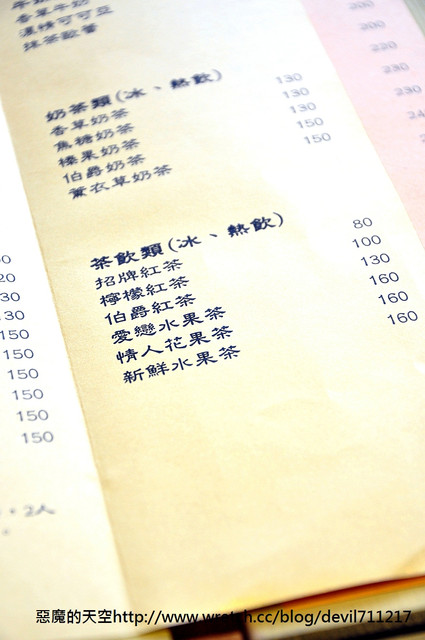 香草牛奶
濃情可可亞
抹茶歐蕾
奶茶類(冰、熱飲)
香草奶茶 130
焦糖奶茶 130
榛果奶茶 130
伯爵奶茶 150
薰衣草奶茶 150
茶飲類(冰、熱飲)
招牌紅茶 80
檸檬紅茶 100
伯爵紅茶 130
愛戀水果茶 160
情人花果茶 160
新鮮水果茶 160
150
150
150
150
150
150
200
200
220
230
230
惡魔的天空http://www.wretch.cc/blog/devil711217